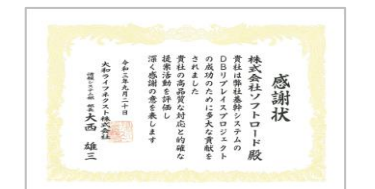 感謝状
株式会社ソフトロード 殿
貴社は弊社基幹システムの
DBリプレイスプロジェクト
の成功のために多大な貢献を
されました
貴社の高品質な対応と的確な
提案活動を評価し
深く感謝の意を表します
令和三年九月二十日
大和ライフネクスト株式会社
情報システム部 部長 大西 雄三